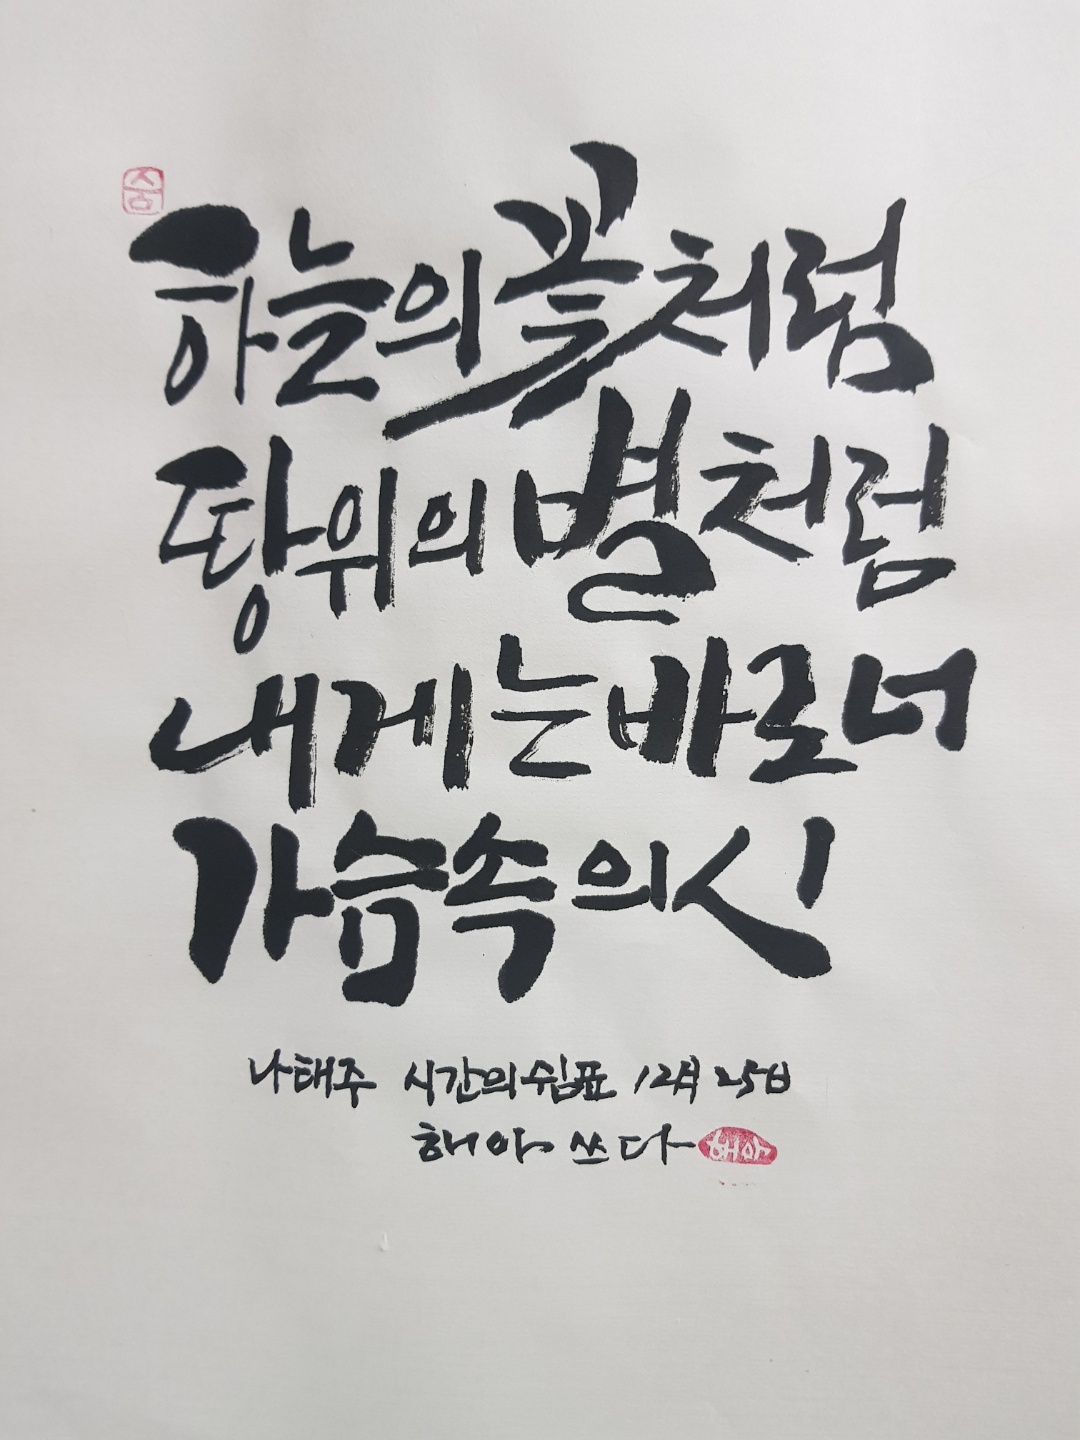 숨
하늘의 꽃처럼
땅위의 별처럼
내게는 바로 너
가슴속의 시
나태주 시간의 쉼표 12月 25日
해아 쓰다 해아